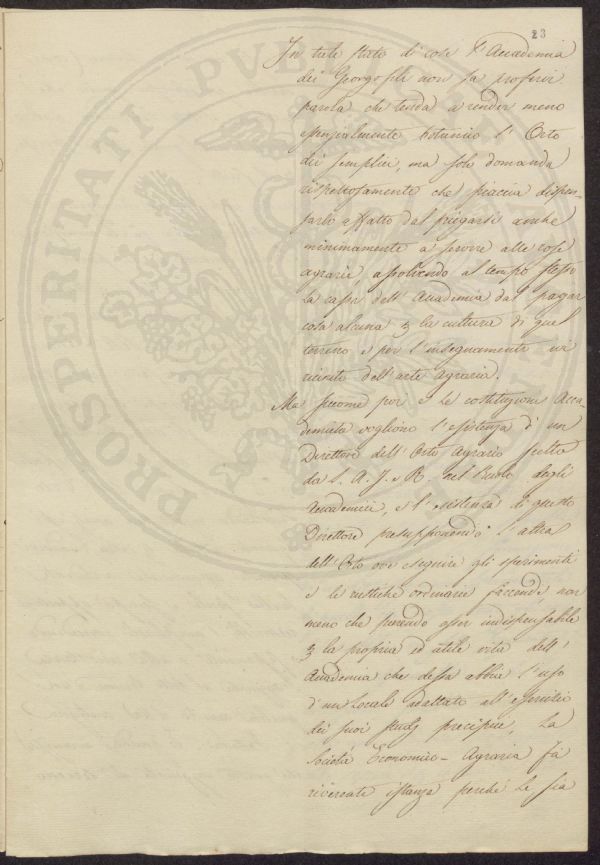 23
In tale stato di cose l'Accademia
dei Georgofili non sa proferir
parola che tenda a render meno
essenzialmente botanico l'Orto
dei semplici, ma solo domanda
rispettosamente che piaccia dispen-
sarlo affatto dal piegarsi anche
minimamente a servire alle cose
agrarie, assolvendo al tempo stesso
la cassa dell'Accademia dal pagar
cosa alcuna per la cultura di quel
terreno e per l'insegnamento ivi
riunito dell'arte agraria.
Ma siccome poi e le costituzioni Acca-
demiche vogliono l'esistenza d'un
Direttore dell'Orto Agrario scelto
da S. A. I. e R. nel Ruolo degli
Accademici, e l'esistenza di questo
Direttore presupponendo l'altra
dell'Orto ove eseguire gli sperimenti
e le rustiche ordinarie faccende, non
meno che parendo esser indispensabile
per la propria ed utile vita dell'
Accademia che dessa abbia l'uso
d'un locale adattato all'esercizio
dei suoi studj precipui, La
Società Economico-Agraria fa
riverente istanza perché le sia
PROSPERITATI PUBLICAE